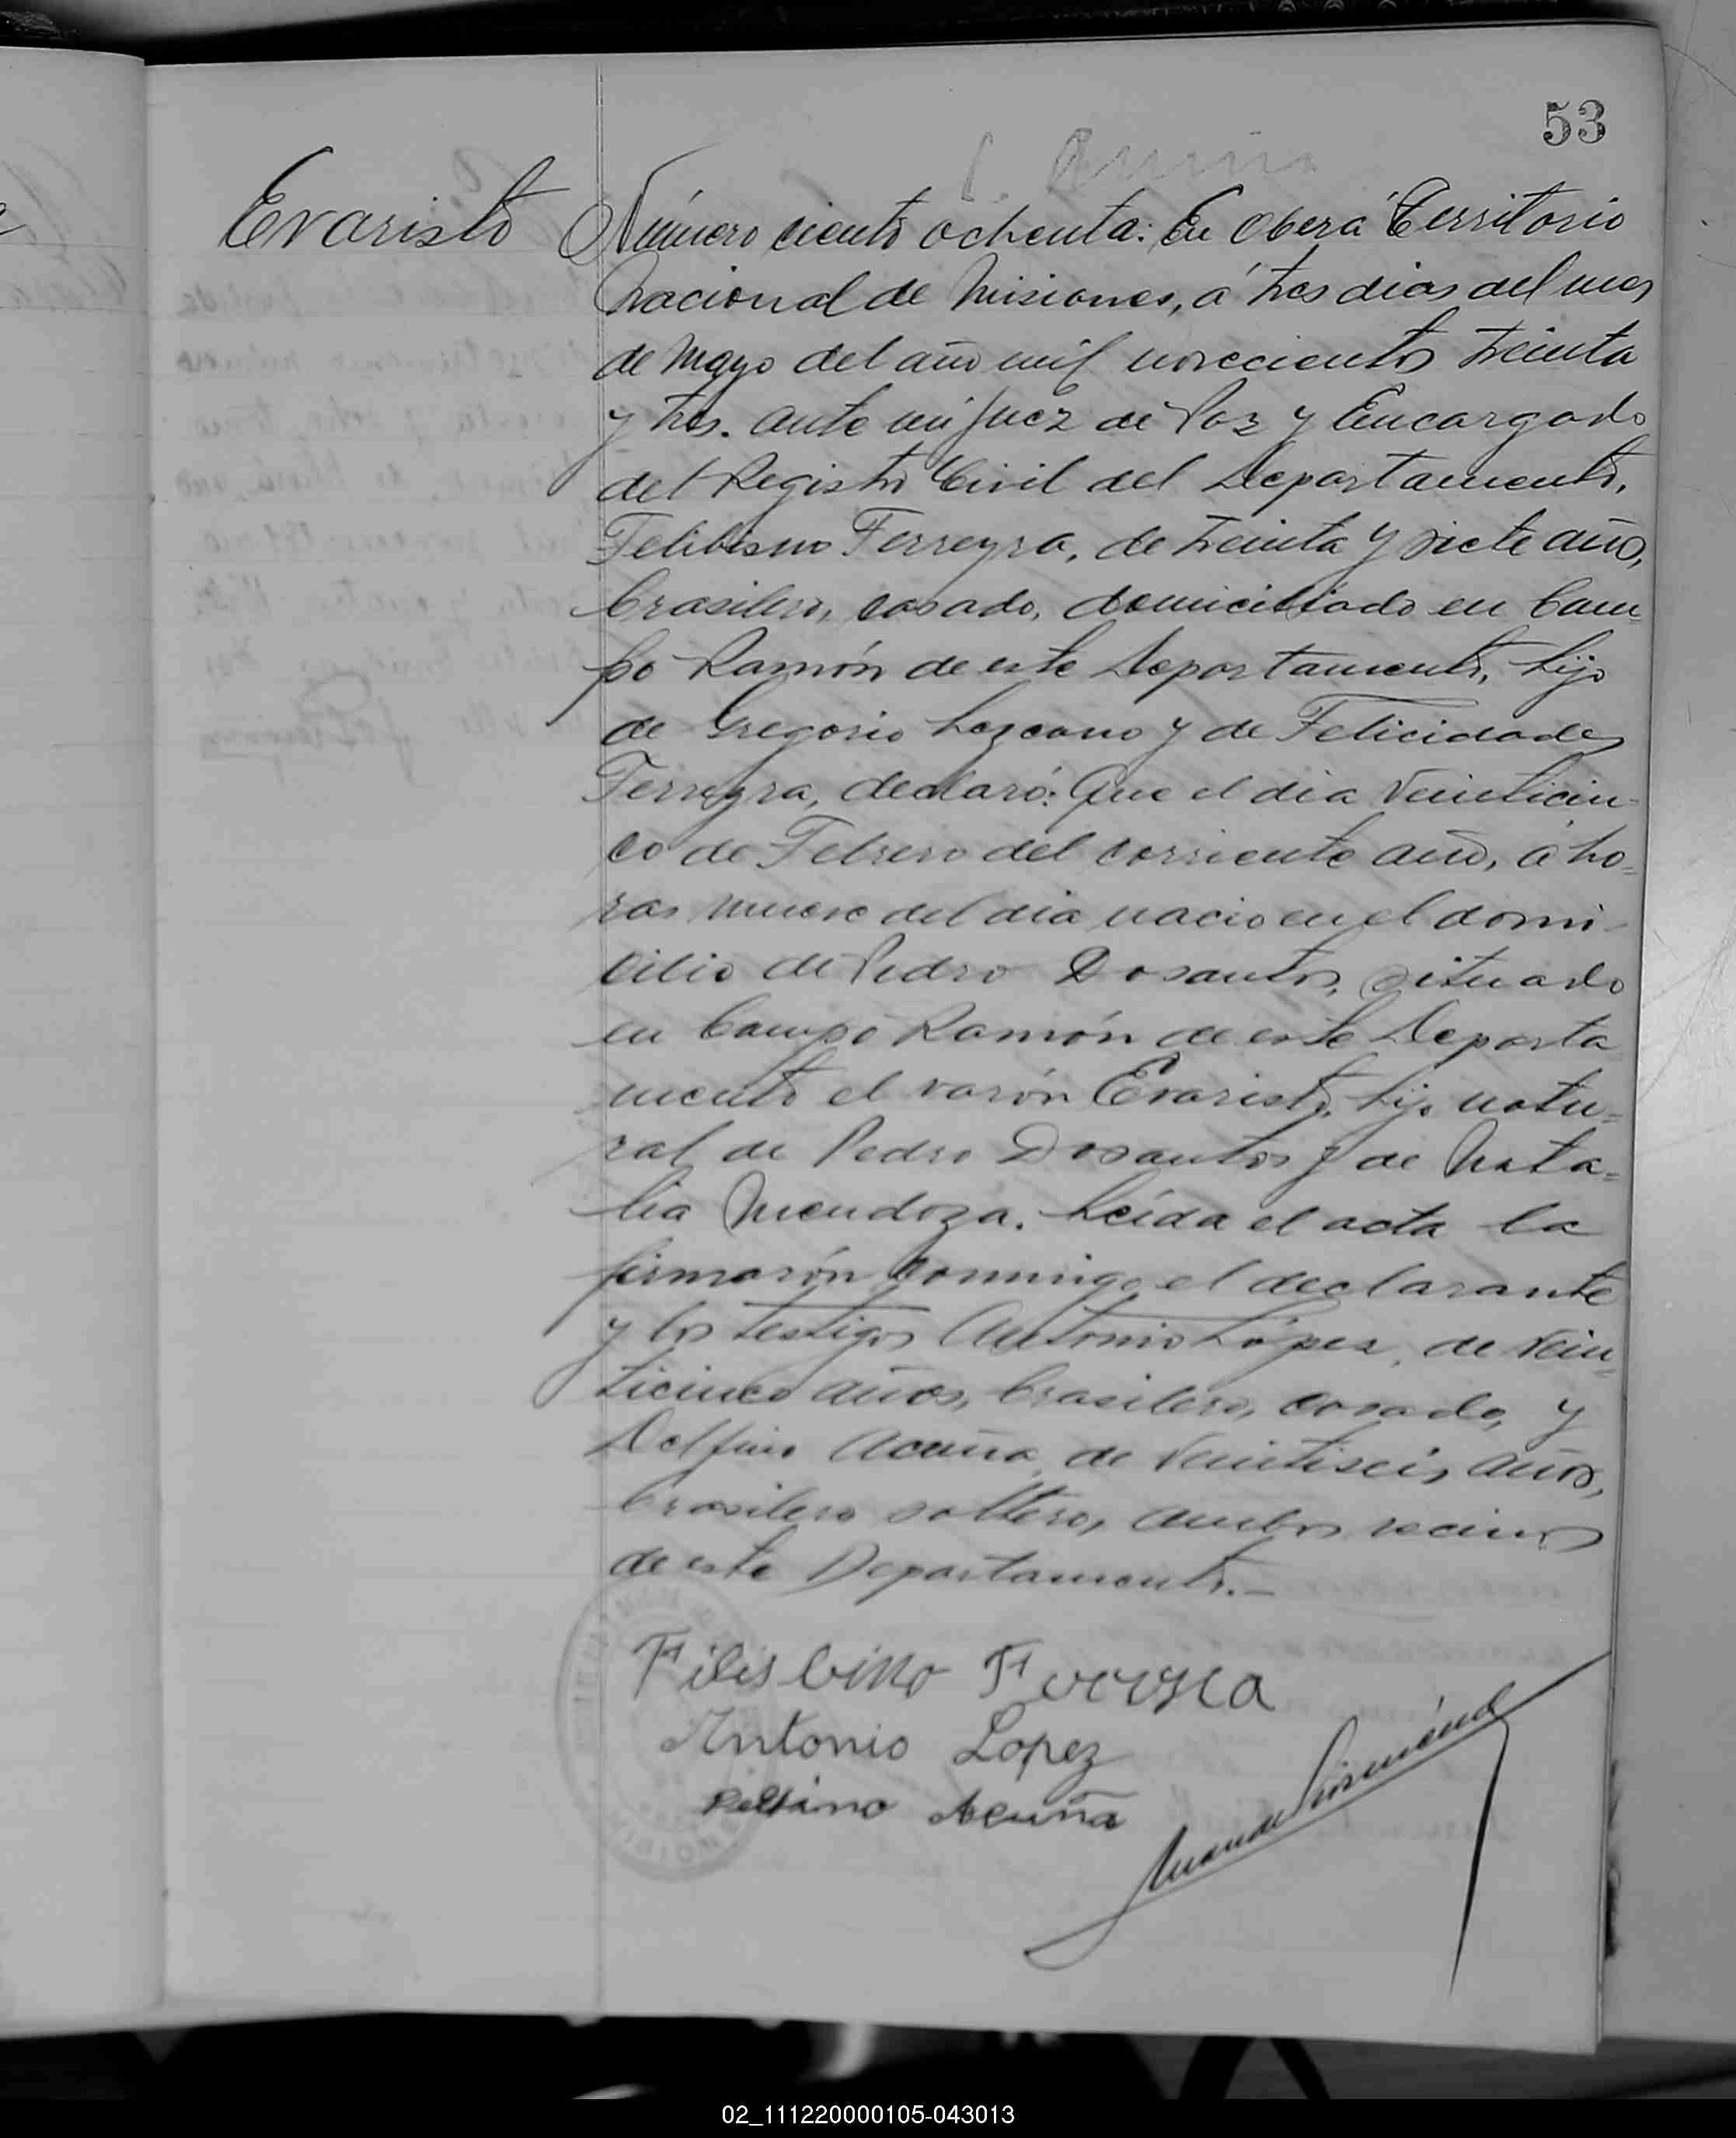 53
Evaristo
Número ciento ochenta: En Oberá Territorio
Nacional de Misiones, á tres dias del mes
de Mayo del año mil novecientos treinta
y tres. Ante mi Juez de Paz y Encargado
del Registro Civil del Departamento,
Felibisno Ferreyra, de treinta y siete años,
brasilero, casado, domiciliado en Cam-
po Ramón de este Departamento, hijo
de Gregorio Lezcano y de Felicidades
Ferreyra, declaró: Que el dia veinticin-
co de Febrero del corriente año, á ho-
ras nueve del dia nacio en el domi-
cilio de Pedro Dosantos, situado
en Campo Ramón de este Departa
mento el varón Evaristo, hijo natu-
ral de Pedro Dosantos y de Nata-
lia Mendoza. Leída el acta la
firmarón conmigo el declarante
y los testigos Antonio López, de vein-
ticinco años, brasilero, casado, y
Delfino Acuña, de veintiseis años,
brasilero soltero, ambos vecinos
de este Departamento.—
Filisbino Ferreyra
Antonio Lopez
Delfino Acuña
02_111220000105-043013